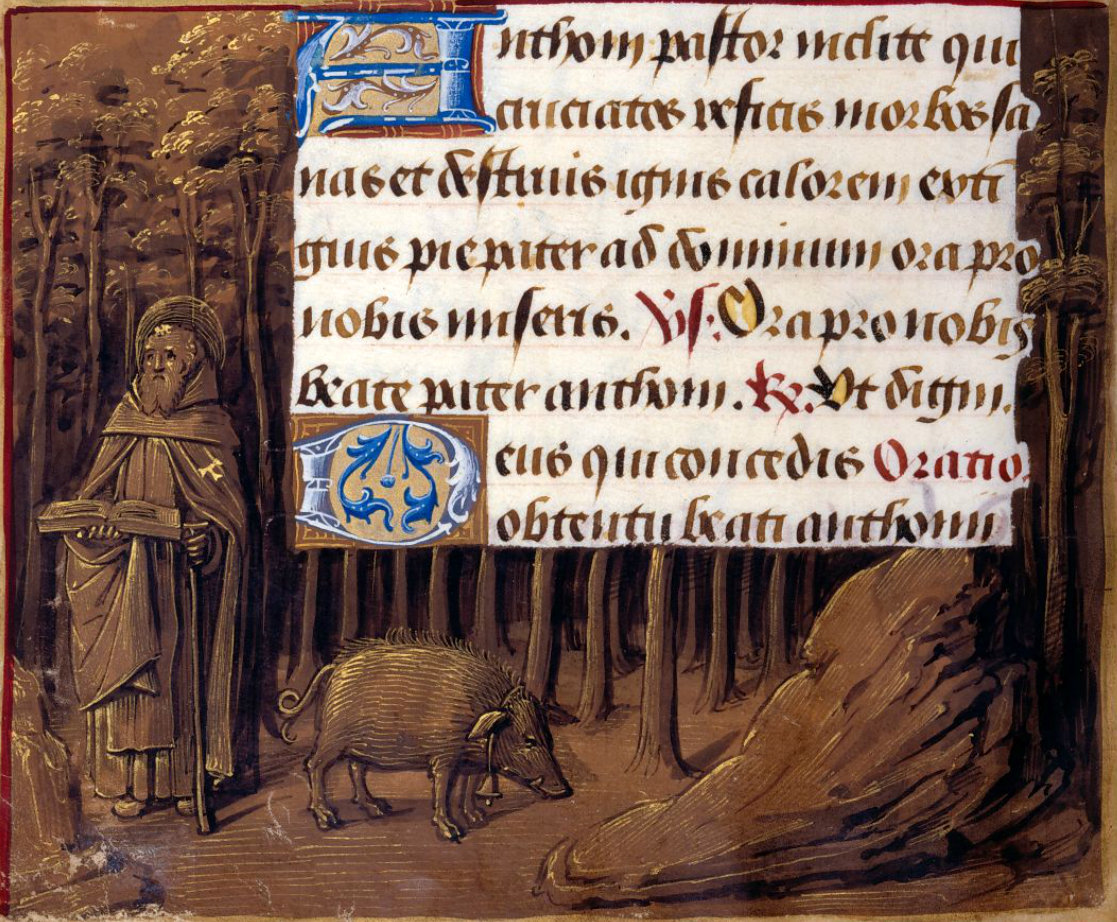 Anthoni pastor inclite qui
cruciatos reficis morbos sa
nas et destruis ignis calorem exti
guis pie pater ad dominum ora pro
nobis miseris. Vs: Ora pro nobis
beate pater anthoni. R. Ut digni.
Deus qui concedis Oratio.
obtentu beati anthonii